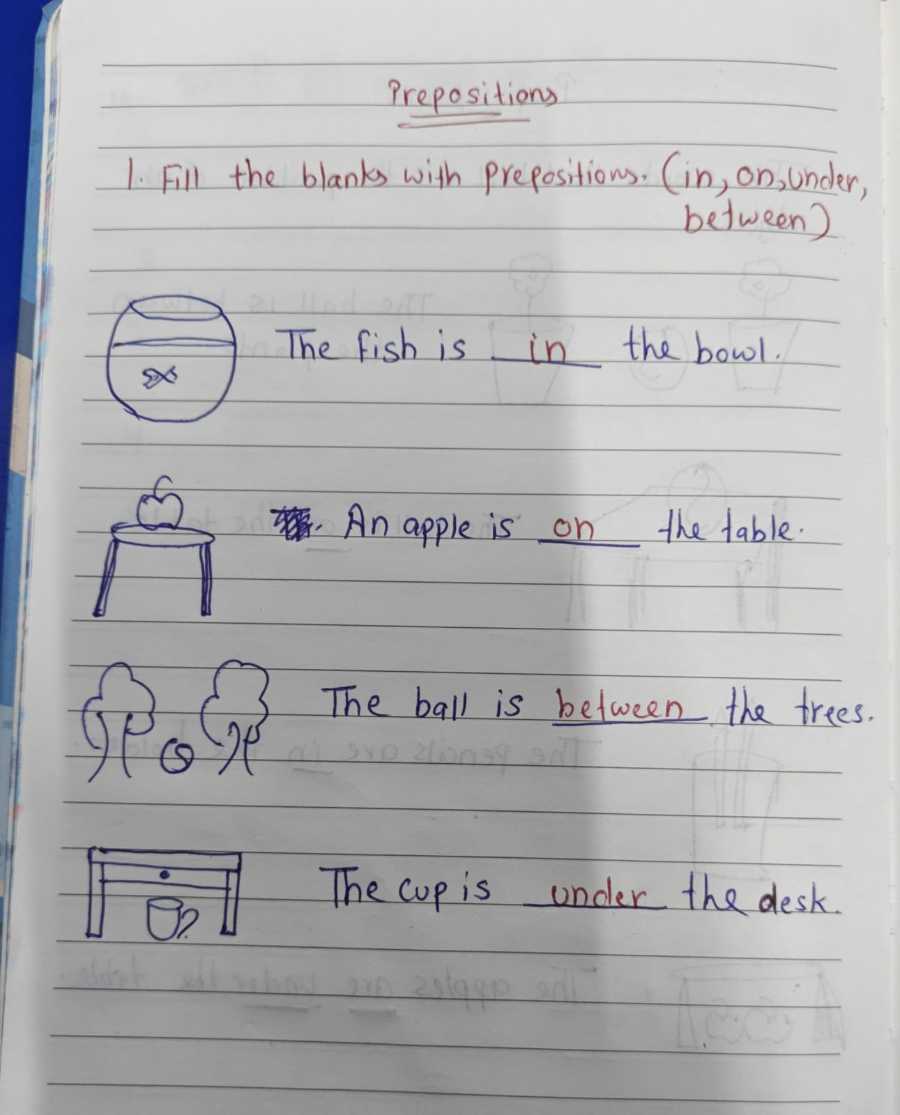 Prepositions
1. Fill the blanks with prepositions. (in, on, under,
between)
The fish is in the bowl.
An apple is on the table.
The ball is between the trees.
The cup is under the desk.